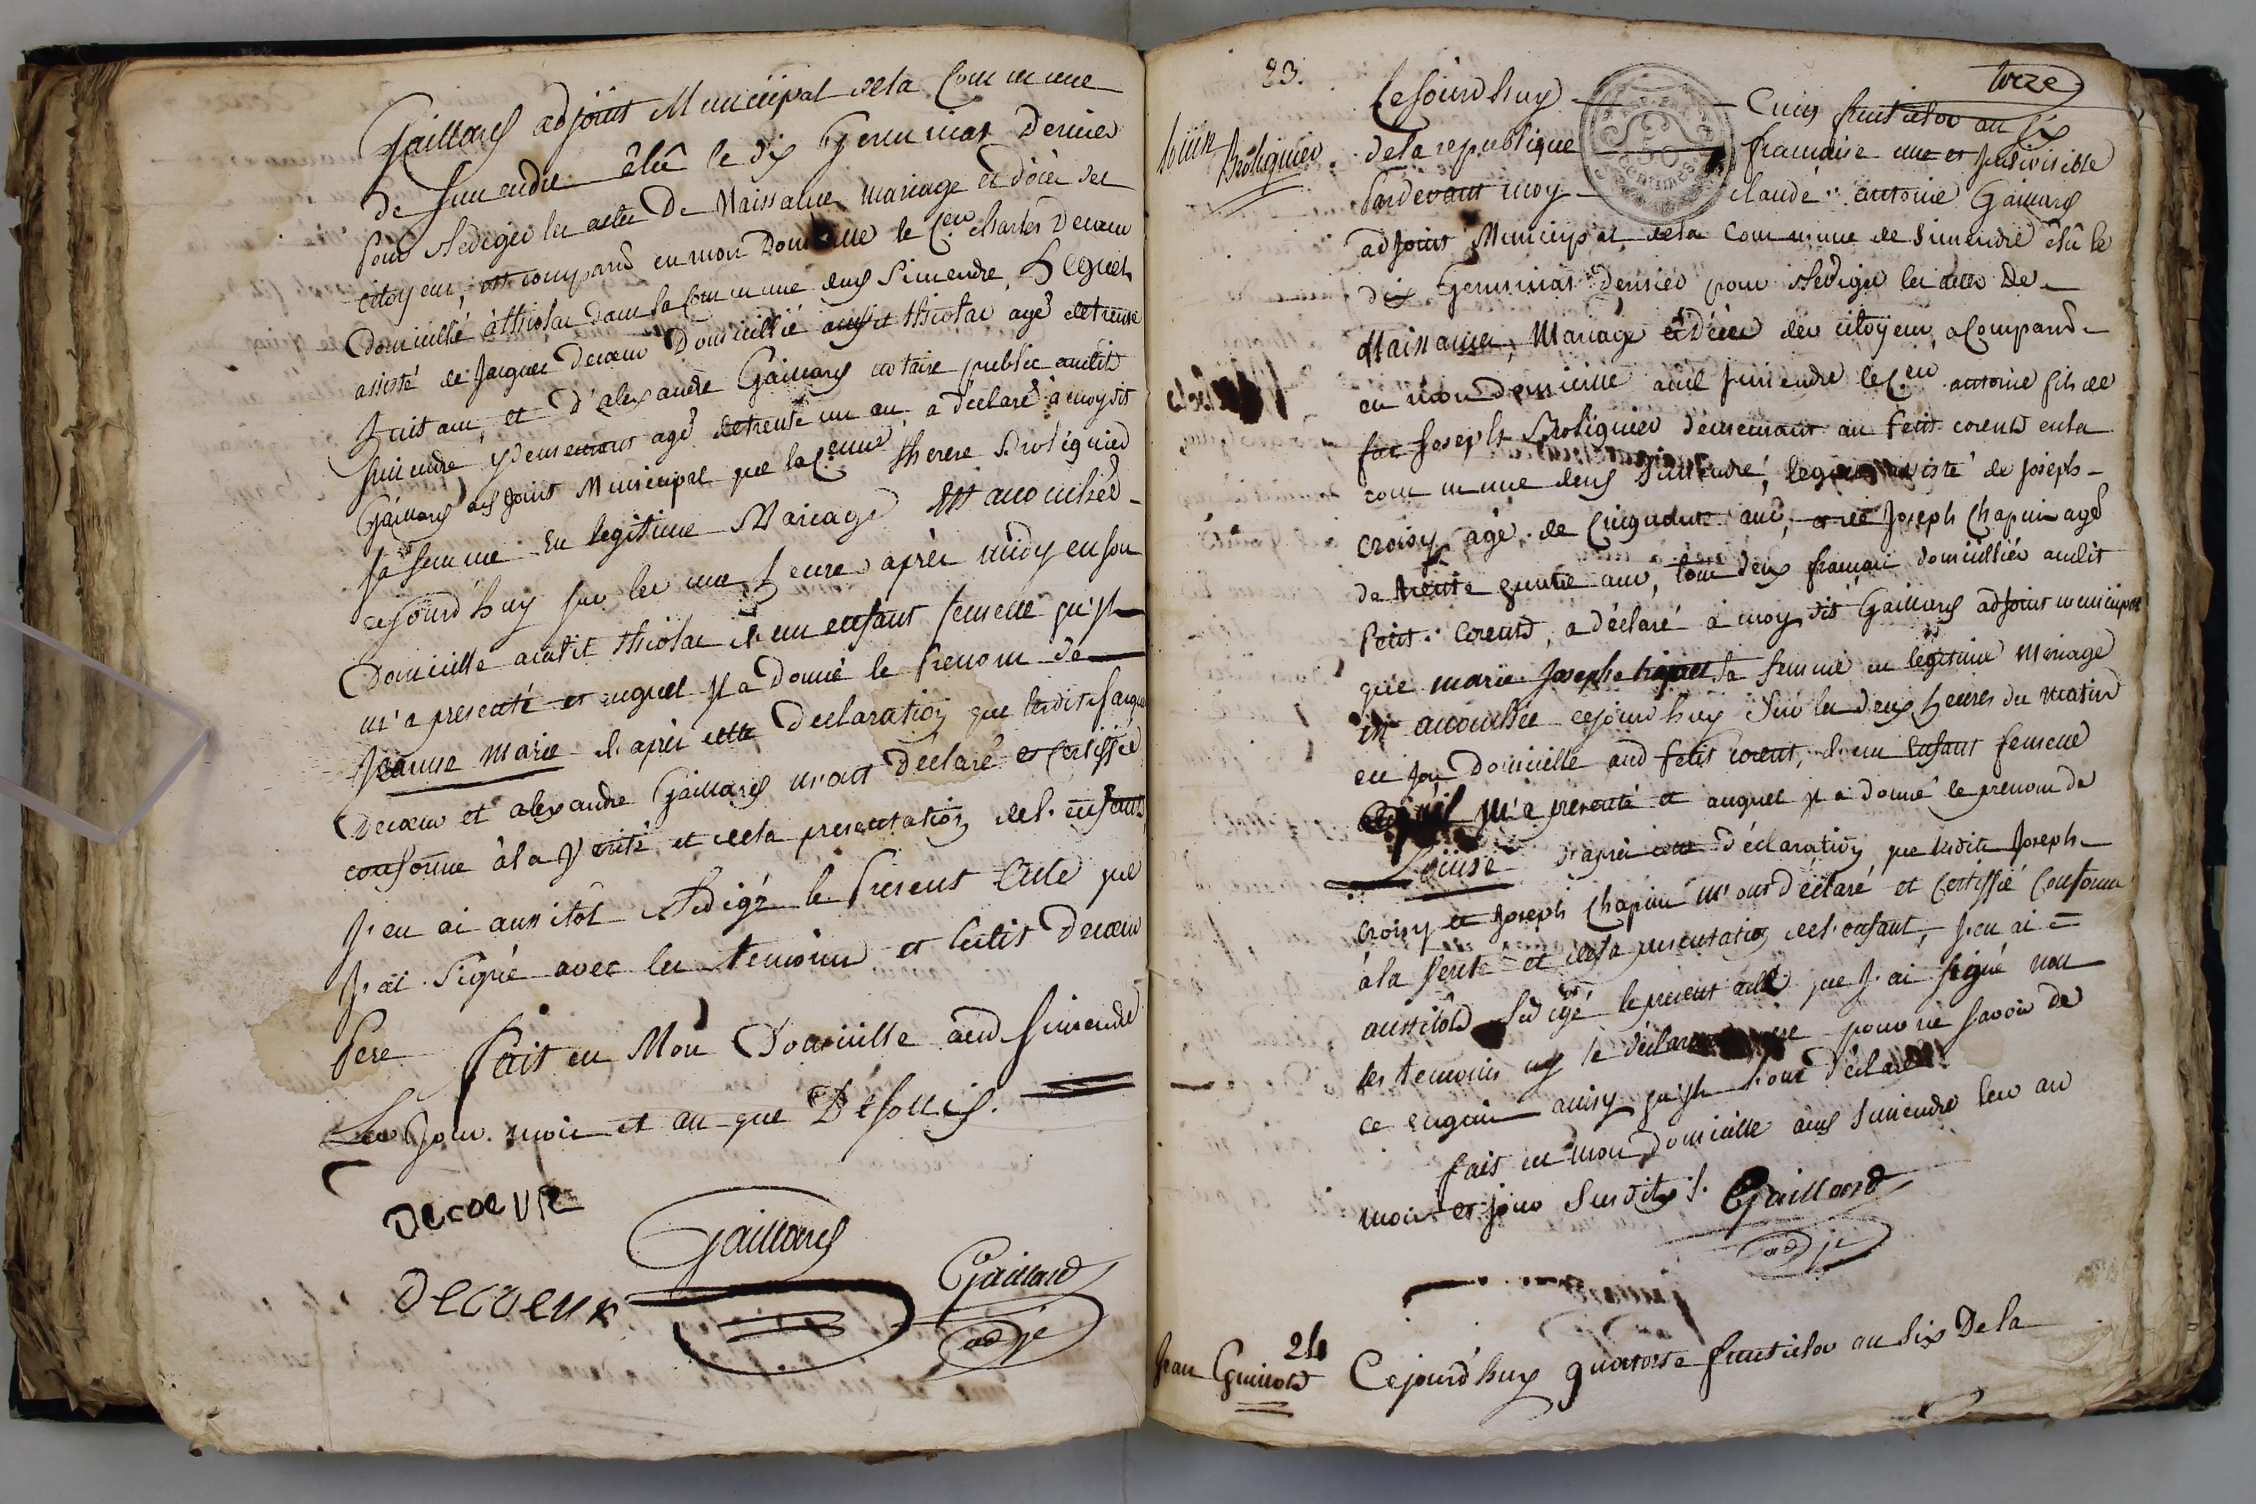 Gaillard adjoint Municipal de la Commune
de Simandre élû le dix Germinar dernier
pour Rediger les actes De Naissance, mariage et décès des
citoyens, est comparû en mon Domicille le C.en charles Decoeur
Domicillié à Thiolas dans la Commune dud Simendre, Lequel
assisté de Jacques Decoeur Domicillié audit Thiolas agé de trente
huit ans, et d'alexandre Gaillard notaire public audit
Simendre y demeurant agé de trente un an, a déclaré à moydit
Gaillard adjoint Municipal que la C.enne Therese Broliquier
sa femme En legitime Mariage est accouchée
cejourd'huy sur les une heure après midy en son
Domicille audit Thiolas d'un enfant femelle qu'il
m'a presenté et auquel Il a Donné le Prenom de
Jeanne Marie d'après cette Declaration que lesdits Jacques
Decoeur et alexandre Gaillard m'ont déclaré et certiffié
conforme à la Verité et de la presentation de l'enfant,
J'en ai aussitôt Redigé le Present Acte que
J'ai Signé avec les temoins et ledit Decoeur
Pere Fait en Mon Domicille aud Simendre
Les Jour mois et an que Dessus.
Decoeur
Gaillard
Decoeur
Gaillard
adj.t
23.
treze
Louise
Broliquier
Cejourd'huy Cinq fructidor an six
de la republique française une et Indivisible
Pardevant moy claude antoine Gaillard
adjoint Municipal de la Commune de Simendre élû le
dix Germinar dernier pour Rediger les actes De
Naissance, Mariage et Décès des citoyens, a Comparû
en mon domicille aud Simendre le C.en antoine fils de
feu Joseph Broliquier demeurant au Petit corent en la
commune dud Simendre, lequel assisté de Joseph
Croisy agé de Cinquante ans, et de Joseph Chapuis agé
de trente quatre ans, tous deux français domicilliés audit
Petit Corent, a déclaré à moy dit Gaillard adjoint municipal
que marie Josephe sa femme en legitime Mariage
est accouchée cejourd'huy Sur les deux heures du matin
en son domicille aud Petit corent, d'un Enfant femelle
qu'il m'a presenté et auquel Il a donné le prenom de
Louise d'après cette déclaration que lesdits Joseph
Croisy et Joseph Chapuis m'ont déclaré et Certiffié Conforme
à la Verité et de la presentation de l'enfant, J'en ai
aussitôt Redigé le present acte que J'ai Signé non
les temoins ny le déclarant pere pour ne Savoir de
ce enquis ainsy qu'ils l'ont déclaré
fait en mon Domicille aud Simendre les an
mois et jour Susdits. Gaillard
adj.t
24
Jean Guillot
Cejourd'huy quatorse fructidor an Six De la